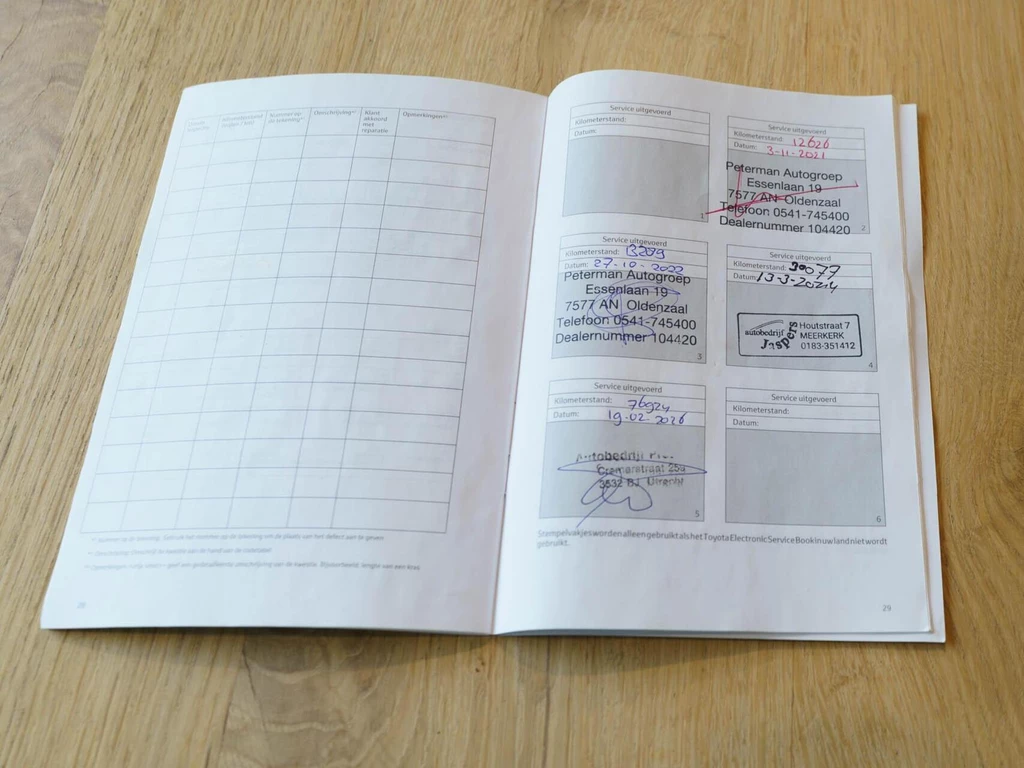 Kilometerstand
Nummer op de tekening*¹
Omschrijving*²
Klant akkoord met reparatie
Opmerkingen*³
28
Service uitgevoerd
Kilometerstand:
Datum:
1
Service uitgevoerd
Kilometerstand: 12626
Datum: 3-11-2021
Peterman Autogroep
Essenlaan 19
7577 AN Oldenzaal
Telefoon 0541-745400
Dealernummer 104420
2
Service uitgevoerd
Kilometerstand:
Datum: 27-10-2022
Peterman Autogroep
Essenlaan 19
7577 AN Oldenzaal
Telefoon 0541-745400
Dealernummer 104420
3
Service uitgevoerd
Kilometerstand: 30077
Datum: 13-3-2024
autobedrijf
Jaspers
Houtstraat 7
MEERKERK
0183-351412
4
Service uitgevoerd
Kilometerstand: 76924
Datum: 19-02-2026
Autobedrijf
Cremerstraat
3532 BJ Utrecht
5
Service uitgevoerd
Kilometerstand:
Datum:
6
Stempelvakjes worden alleen gebruikt als het Toyota Electronic Service Book in uw land niet wordt
gebruikt.
29